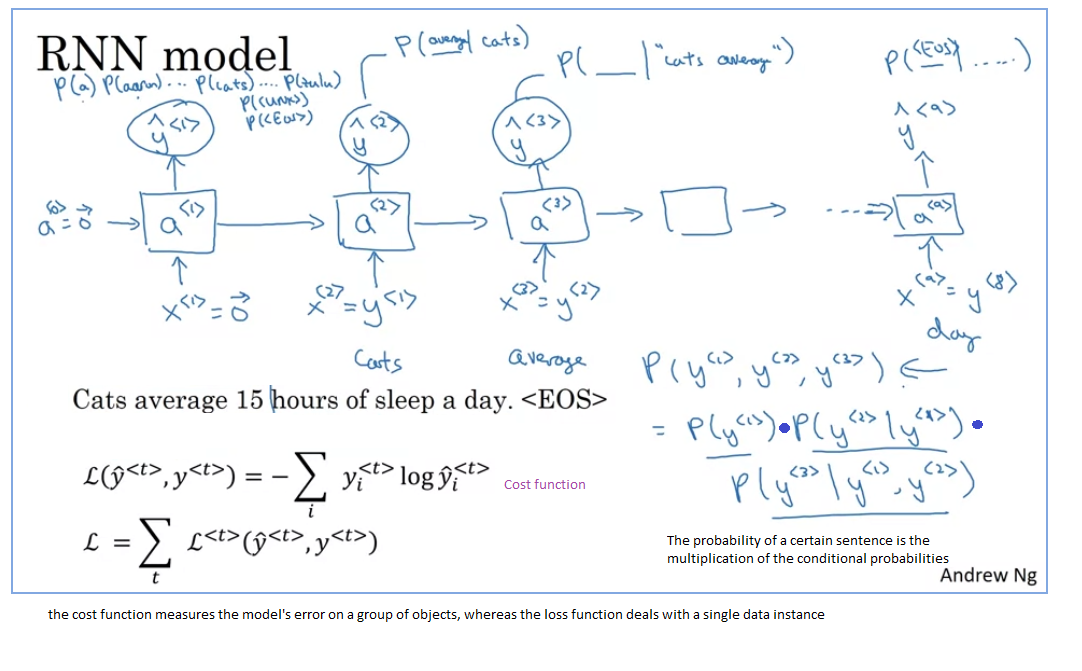 RNN model
P(a) P(aaron) ... P(cats) .... P(zulu)
P(<UNK>)
P(<EOS>)
P(average | cats)
P(__ | "cats average")
P(<EOS> | .....)
ŷ<1> ŷ<2> ŷ<3> ŷ<9>
a<0>=0⃗ → a<1> → a<2> → a<3> → → ...⇒ a<9>
x<1>=0⃗ x<2>=y<1> x<3>=y<2> x<9>=y<8>
Cats average day
Cats average 15 hours of sleep a day. <EOS>
P(y<1>, y<2>, y<3>) ←
= P(y<1>) • P(y<2> | y<1>) •
P(y<3> | y<1>, y<2>)
ℒ(ŷ<t>, y<t>) = − ∑i yi<t> log ŷi<t>
Cost function
ℒ = ∑t ℒ<t>(ŷ<t>, y<t>)
The probability of a certain sentence is the
multiplication of the conditional probabilities
Andrew Ng
the cost function measures the model's error on a group of objects, whereas the loss function deals with a single data instance